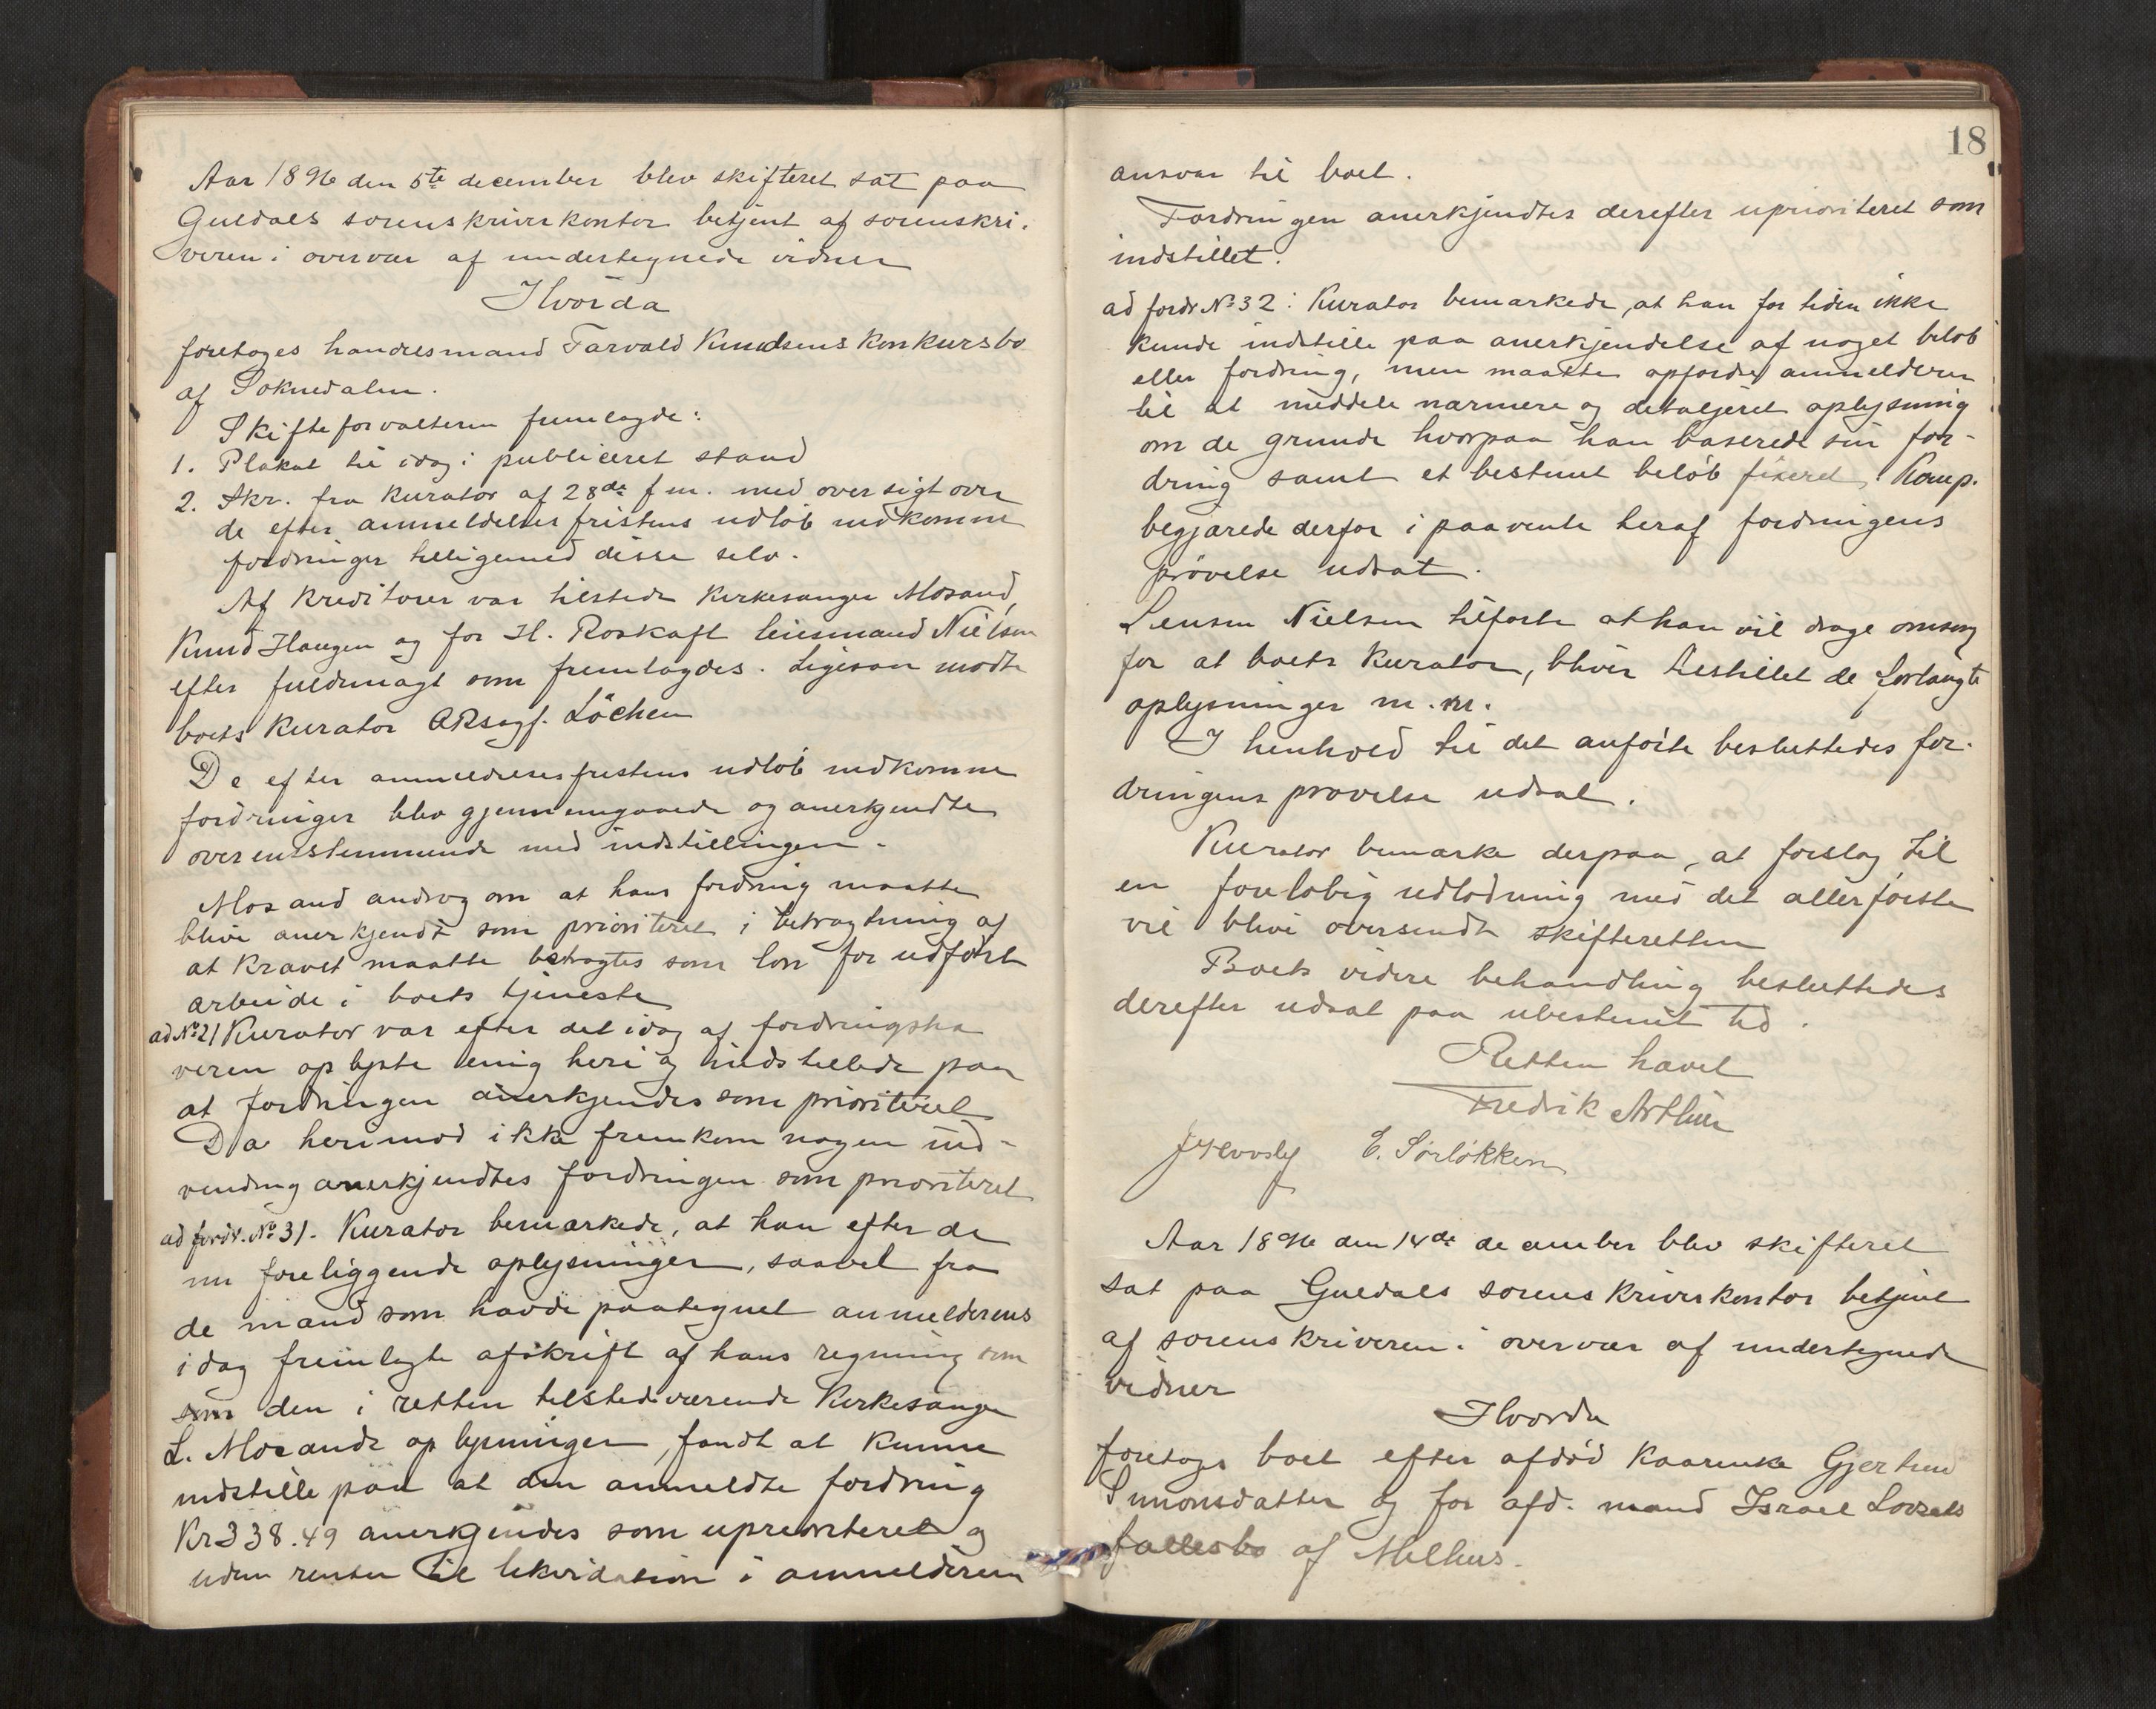 Aar 1896 den 5te december blev skifteret sat paa
Guldals sorenskriverkontor betjent af sorenskri-
veren i overvær af undertegnede vidner
Hvorda
foretoges handelsmand Tarvald Knudsens konkursbo
af Soknedalen.
Skifteforvalteren fremlagde:
1. Plakat til idag i publiceret stand
2. Skr. fra kurator af 28de f m. med oversigt over
de efter anmeldelsesfristens udløb indkomne
fordringer tilligemed disse selv.
Af kreditorer var tilstede kirkesanger Mosand,
Knud Haugen og for H. Roskaft lensmand Nielsen
efter fuldmagt som fremlagdes. Ligesaa mødte
boets kurator ORsagf. Löchen
De efter anmeldelsesfristens udløb indkomne
fordringer blev gjennemgaaede og anerkjendte
overensstemmende med indstillingen.
Mosand androg om at hans fordring maatte
blive anerkjendt som prioriteret i betragtning af
at kravet maatte betragtes som løn for udført
arbeide i boets tjeneste
ad No 21 Kurator var efter det idag af fordringsha
veren oplyste enig heri og indstillede paa
at fordringen anerkjendes som prioriteret
Da herimod ikke fremkom nogen ind-
vending anerkjendtes fordringen som prioriteret
ad fordr. No 31. Kurator bemærkede, at han efter de
nu foreliggende oplysninger, saavel fra
de mænd som havde paategnet anmelderens
idag fremlagte afskrift af hans regning som
som den i retten tilstedeværende Kirkesanger
L. Mosands oplysninger, fandt at kunne
indstille paa at den anmeldte fordring
Kr 338.49 anerkjendes som uprioriteret og
uden renter til likvidation i anmelderens
18
ansvar til boet.
Fordringen anerkjendtes derefter uprioriteret som
indstillet.
ad fordr No 32: Kurator bemærkede, at han for tiden ikke
kunde indstille paa anerkjendelse af noget beløb
eller fordring, men maatte opfordre anmelderen
til at meddele nærmere og detaljeret oplysning
om de grunde hvorpaa han baserede sin for-
dring samt et bestemt beløb fixeret. Komp.
begjærede derfor i paavente heraf fordringens
prøvelse udsat.
Lensm Nielsen tilførte at han vil drage omsorg
for at boets kurator, bliver tilstillet de forlangte
oplysninger m.m.
I henhold til det anførte besluttedes for-
dringens prøvelse udsat.
Kurator bemærke derpaa, at forslag til
en foreløbig udlodning med det allerførste
vil blive oversendt skifteretten
Boets videre behandling besluttedes
derefter udsat paa ubestemt tid.
Retten hævet
Fredrik Arthur
E. Sørløkken
Aar 1896 den 14de december blev skifteret
sat paa Guldals sorenskriverkontor betjent
af sorenskriveren i overvær af undertegnede
vidner
Hvorda
foretoges boet efter afdød Kaarenke Gjertrud
Simonsdatter og for afd. mand Israel
fællesbo af Melhus.